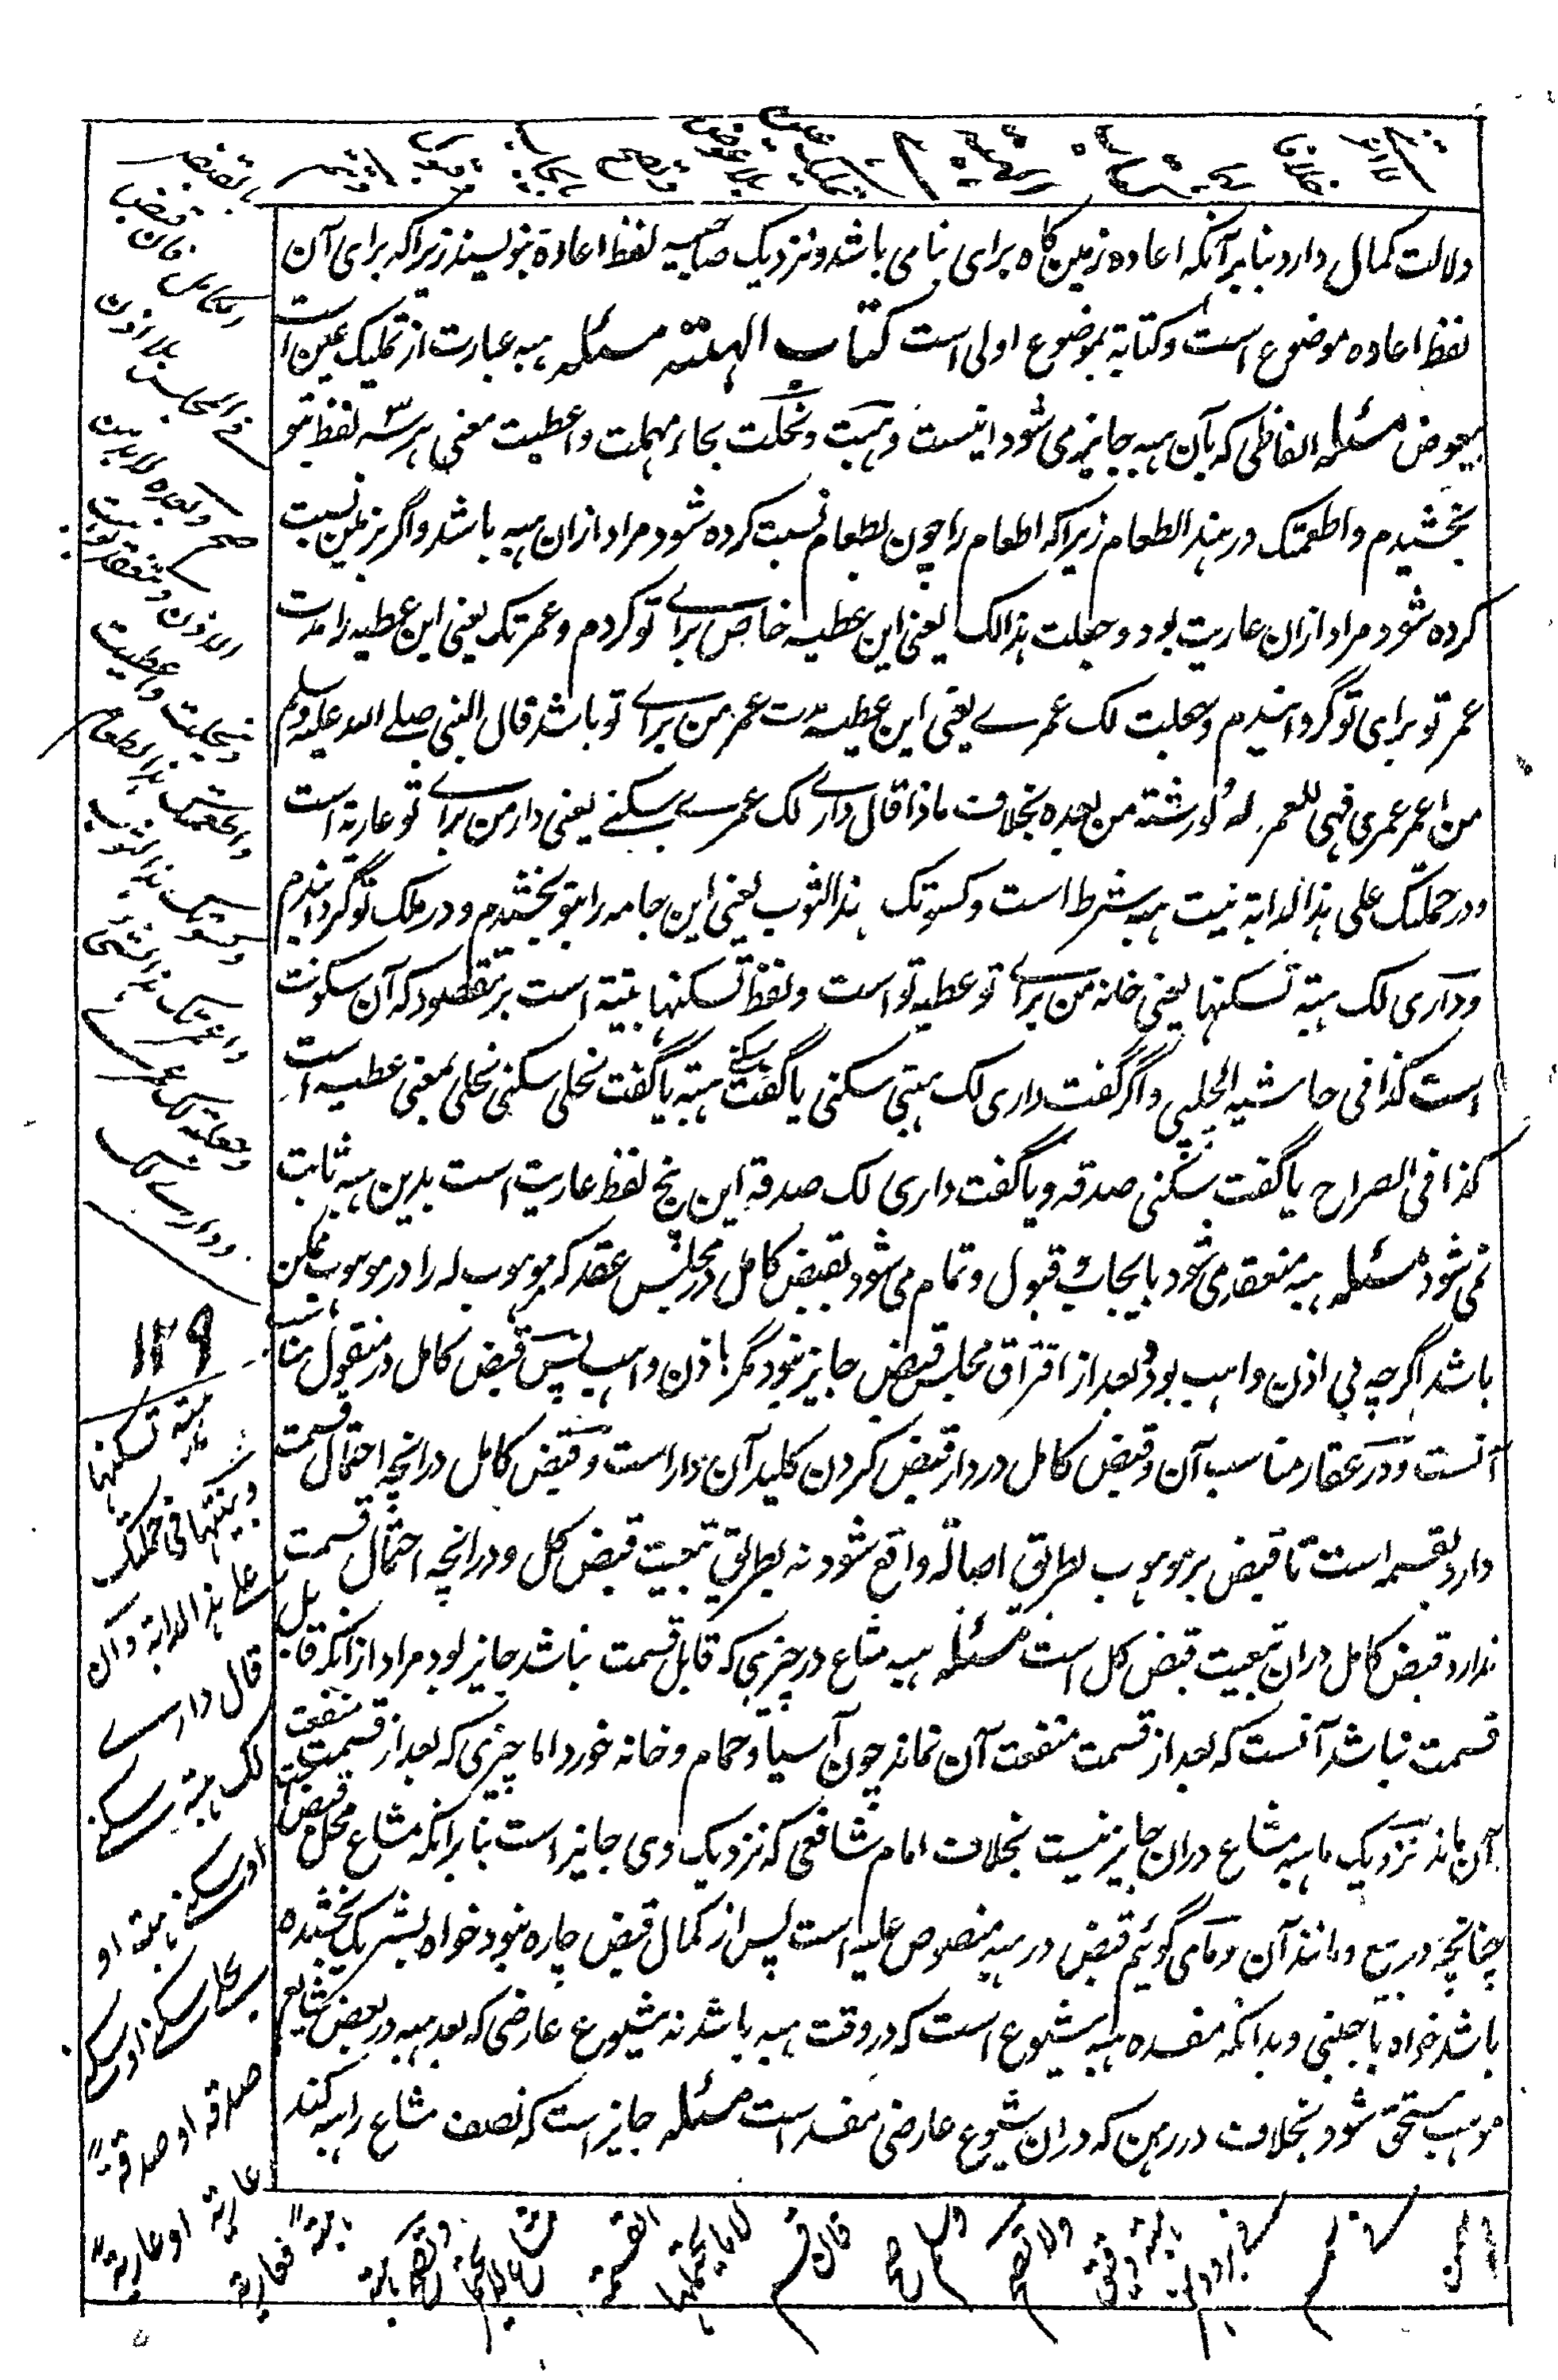 دلالت کمال دارد بنابر آنکه اعاده زمین کاه برای بنا می باشد و نزدیک صاحبیه لفظ اعادة بنویسند زیرا که برای آن
لفظ اعاده موضوع است و کتابة بموضوع اولی است کتاب الهبته مسئله هبه عبارت از تملیک عین است
بیعوض مسئله الفاظی که بآن هبه جایز می شود اینست وهبت و نحلت بحاء مهملت و اعطیت معنی هر سه لفظ بتو
بخشیدم و اطعمتک در هذا الطعام زیرا که اطعام را چون بطعام نسبت کرده شود مراد ازان هبه باشد و اگر بزمین نسبت
کرده شود مراد ازان عاریت بود و جعلت هذا لک یعنی این عطیه خاص برای تو کردم و عمرتک یعنی این عطیه را مدت
عمر تو برای تو گردانیدم و جعلت لک عمرے یعنی این عطیه مدت عمر من برای تو باشد قال النبی صلے الله علیه وسلم
من اعمر عمری فهی للمعمر له و لورثته من بعده بخلاف ما ذا قال داری لک عمرے سکنے یعنی دار من برای تو عاریة است
و در حملتک علی هذا الدابة نیت هبه شرط است و کسوتک هذا الثوب یعنی این جامه را بتو بخشیدم و در ملک تو گردانیدم
و داری لک هبة تسکنها یعنی خانه من برای تو عطیه تو است و لفظ تسکنها بنیة است بر مقصود که آن سکونت
است کذا فی حاشیه الچلپی و اگر گفت داری لک هبتی سکنی یا گفت سکنے هبته یا گفت نحلی سکنی نحلی بمعنی عطیه است
کذا فی الصراح یا گفت سکنی صدقه و یا گفت داری لک صدقة این پنج لفظ عاریت است بدین هبه ثابت
نمی شود مسئله هبه منعقد می شود بایجاب و قبول و تمام می شود بقبض کامل در مجلس عقد که موهوب له را در موهوب ممکن
باشد اگر چه بی اذن واهب بود و بعد از افتراق مجلس قبض جایز نبود مگر باذن واهب پس قبض کامل در منقول مناسب
آنست و در عقار مناسب آن و قبض کامل در دار قبض کردن کلید آن دار است و قبض کامل در انچه احتمال قسمت
دارد بقسمه است تا قبض بر موهوب بطریق اصالة واقع شود نه بطریق تبعیت قبض کل و در انچه احتمال قسمت
ندارد قبض کامل دران تبعیت قبض کل است مسئله هبه مشاع در چیزی که قابل قسمت نباشد جایز بود مراد از آنکه قابل
قسمت نباشد آنست که بعد از قسمت منفعت آن نماند چون آسیا و حمام و خانه خورد اما چیزی که بعد از قسمت منفعت
آن ماند نزدیک ما هبه مشاع دران جایز نیست بخلاف امام شافعی که نزدیک وی جایز است بنابر آنکه مشاع محل قبض است
چنانچه در بیع و مانند آن و ما می گوئیم قبض در هبه منصوص علیه است پس از کمال قبض چاره نبود خواه بشریک بخشیده
باشد خواه باجنبی و بدانکه مفسده هبه شیوع است که در وقت هبه باشد نه شیوع عارضی که بعد هبه در بعض شایع
موهب مستحق شود بخلاف در رهن که دران شیوع عارضی مفسد است مسئله جایز است که نصف مشاع را هبه کند
بالقبض
فان قبض
فی المجلس بلا اذن
صح و بعده لا بدون
الاذن و تنعقد بوهبت
و نحلت و اعطیت
و اطعمتک هذا الطعام
و کسوتک هذا الثوب
و اعمرتک هذا الشئ
و جعلته لک عمرے
و دارے لک
۱۲۹
هبته تسکنها
و بنیتها فی حملتک
علے هذا الدابة و ان
قال دارے
لک هبته سکنے
او سکنے هبته او
نحلے سکنے او سکنے
صدقه او صدقةً
عاریة او عاریةً
هبةً فعاریة